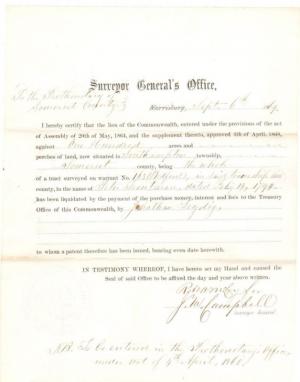 Surveyor General's Office,
To the Prothonotary of
Somerset County
Harrisburg, Sept 6th 1869
I hereby certify that the lien of the Commonwealth, entered under the provisions of the act
of Assembly of 20th of May, 1864, and the supplement thereto, approved 4th of April, 1868,
against One Hundred acres and
perches of land, now situated in Southampton township,
Somerset county, being the whole
of a tract surveyed on warrant No. in said township and
county, in the name of Peter dated Feby 14, 1794
has been liquidated by the payment of the purchase money, interest and fees to the Treasury
Office of this Commonwealth, by Jonathan
to whom a patent therefor has been issued, bearing even date herewith.
IN TESTIMONY WHEREOF, I have hereto set my Hand and caused the
Seal of said Office to be affixed the day and year above written.
for
J. M. Campbell
Surveyor General
N.B. To be entered in the Prothonotary's Office
under act of 4th April, 1868.